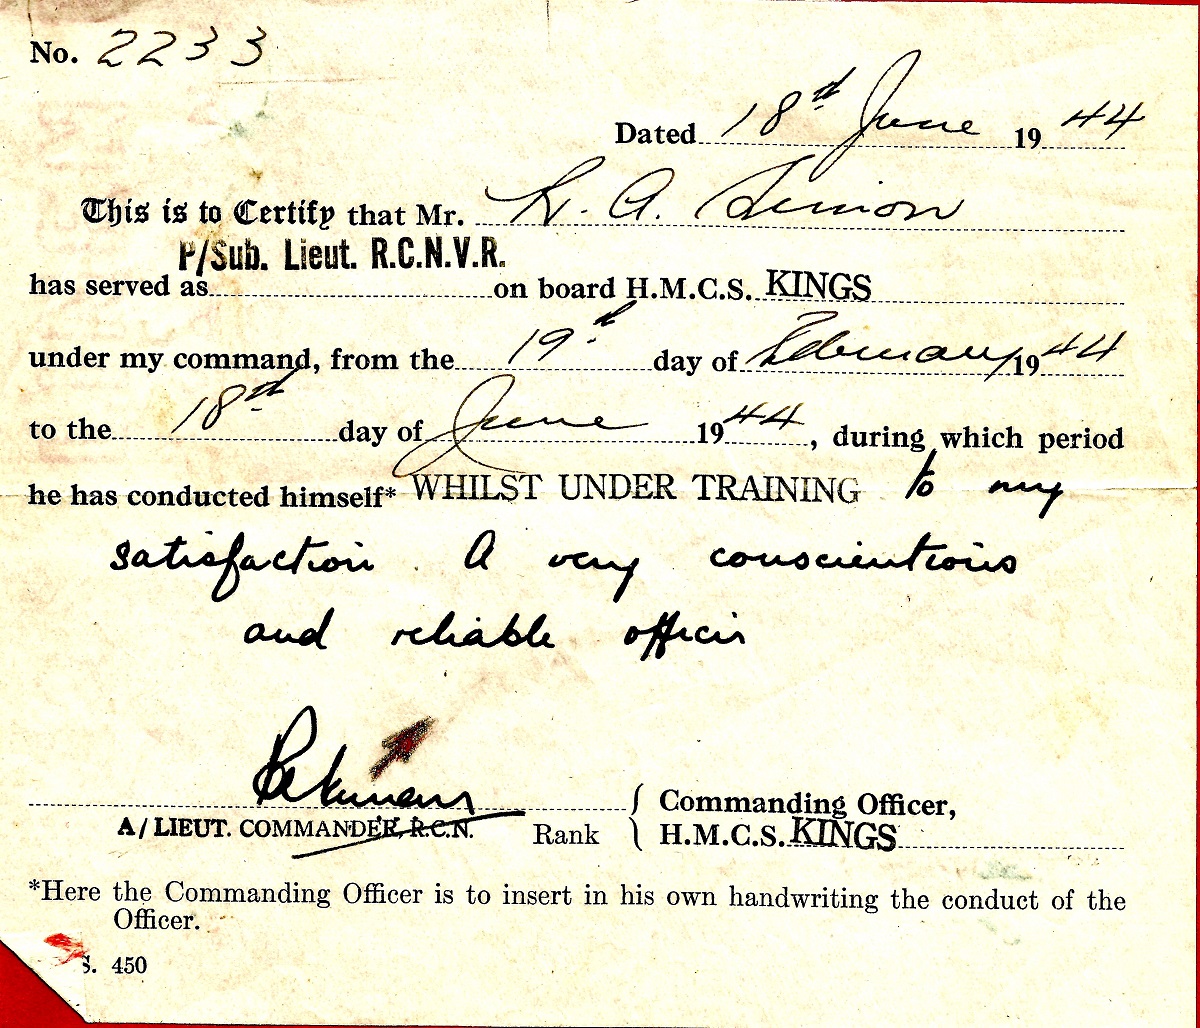 No. 2233
Dated 18th June 1944
This is to Certify that Mr. L. A. Simon
P/Sub. Lieut. R.C.N.V.R.
has served as on board H.M.C.S. KINGS
under my command, from the 19th day of February 1944
to the 18th day of June 1944, during which period
he has conducted himself* WHILST UNDER TRAINING to my
satisfaction. A very conscientious
and reliable officer
Commanding Officer,
A/LIEUT. COMMANDER, R.C.N. Rank H.M.C.S. KINGS
*Here the Commanding Officer is to insert in his own handwriting the conduct of the
Officer.
S. 450